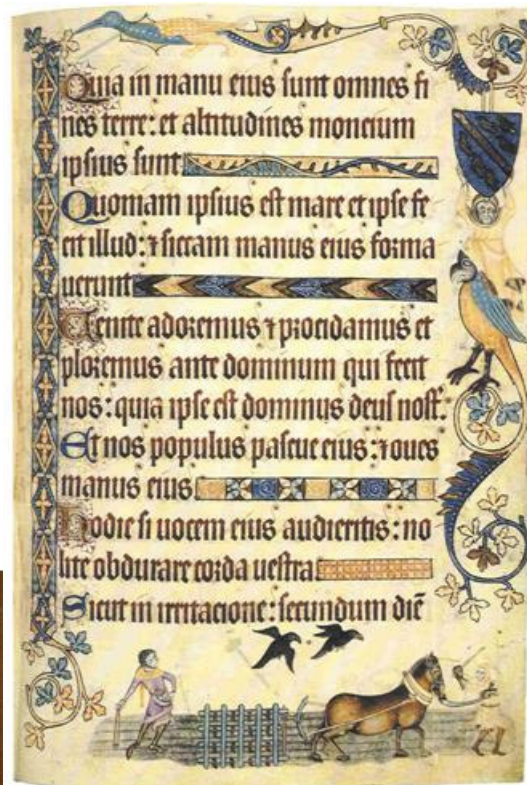 Quia in manu eius sunt omnes fi
nes terre: et altitudines moncium
ipsius sunt
Quoniam ipsius est mare et ipse fe
cit illud: ⁊ siccam manus eius forma
uerunt
Uenite adoremus ⁊ procidamus et
ploremus ante dominum qui fecit
nos: quia ipse est dominus deus nost̄.
Et nos populus pascue eius: ⁊ oues
manus eius
Hodie si uocem eius audieritis: no
lite obdurare corda uestra
Sicut in irritacione: secundum diē